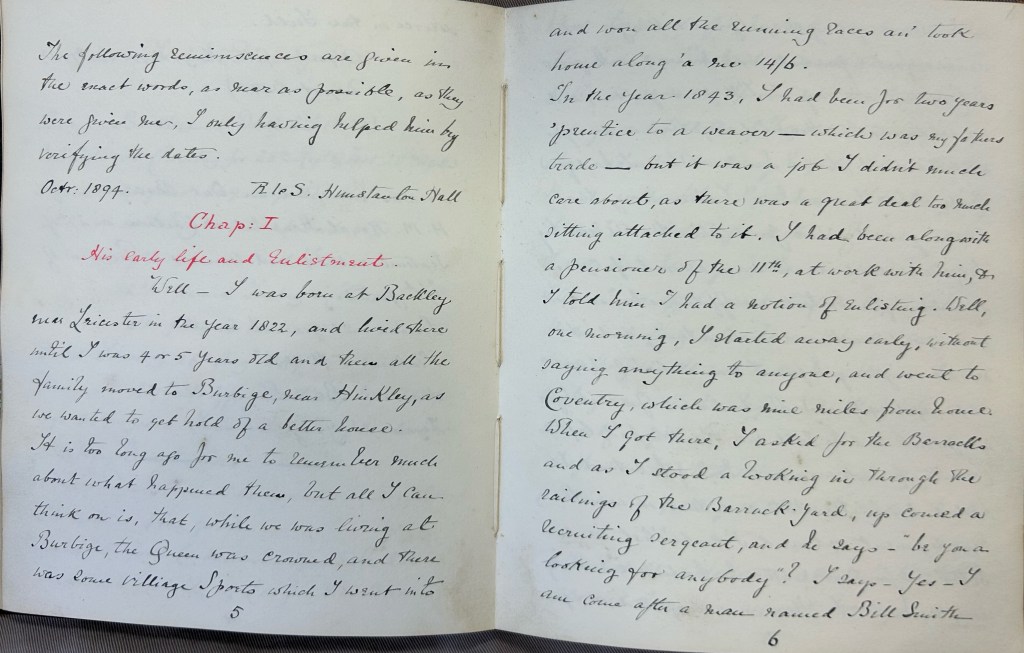 The following reminiscences are given in
the exact words, as near as possible, as they
were given me, I only having helped him by
verifying the dates.
Octr: 1894. A le S. Hunstanton Hall
Chap: I
His early life and Enlistment.
Well – I was born at Backley
near Leicester in the year 1822, and lived there
until I was 4 or 5 years old and then all the
family moved to Burbige, near Hinkley, as
we wanted to get hold of a better house.
It is too long ago for me to remember much
about what happened then, but all I can
think on is, that, while we was living at
Burbige, the Queen was crowned, and there
was some village Sports which I went into
5
and won all the running races an' took
home along 'a me 14/6.
In the year 1843, I had been for two years
'prentice to a weaver — which was my fathers
trade — but it was a job I didn't much
care about, as there was a great deal too much
sitting attached to it. I had been along with
a pensioner of the 11th, at work with him, &
I told him I had a notion of Enlisting. Well,
one morning, I started away early, without
saying anything to anyone, and went to
Coventry, which was nine miles from home.
When I got there, I asked for the Barracks
and as I stood a looking in through the
railings of the Barrack-yard, up comed a
recruiting sergeant, and he says – "be you a
looking for anybody"? I says – Yes – I
am come after a man named Bill Smith
6